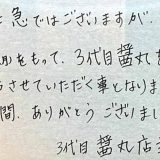 急ではございますが、
月)をもって、3代目醤丸を
させていただく事となりま
間、ありがとうございまし
3代目 醤丸店